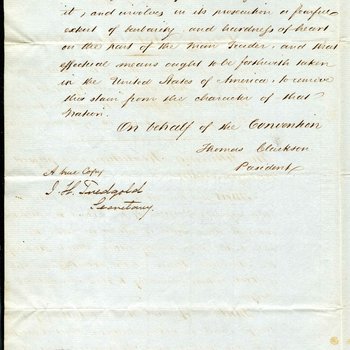 it, and involves in its prosecution a fearful
extent of barbarity and hardness of heart
on the part of the Man Trader, and that
effectual means ought to be forthwith taken
in the United States of America, to remove
this stain from the character of that
Nation.
On behalf of the Convention
Thomas Clarkson
President
A true Copy
J. H. Tredgold
Secretary